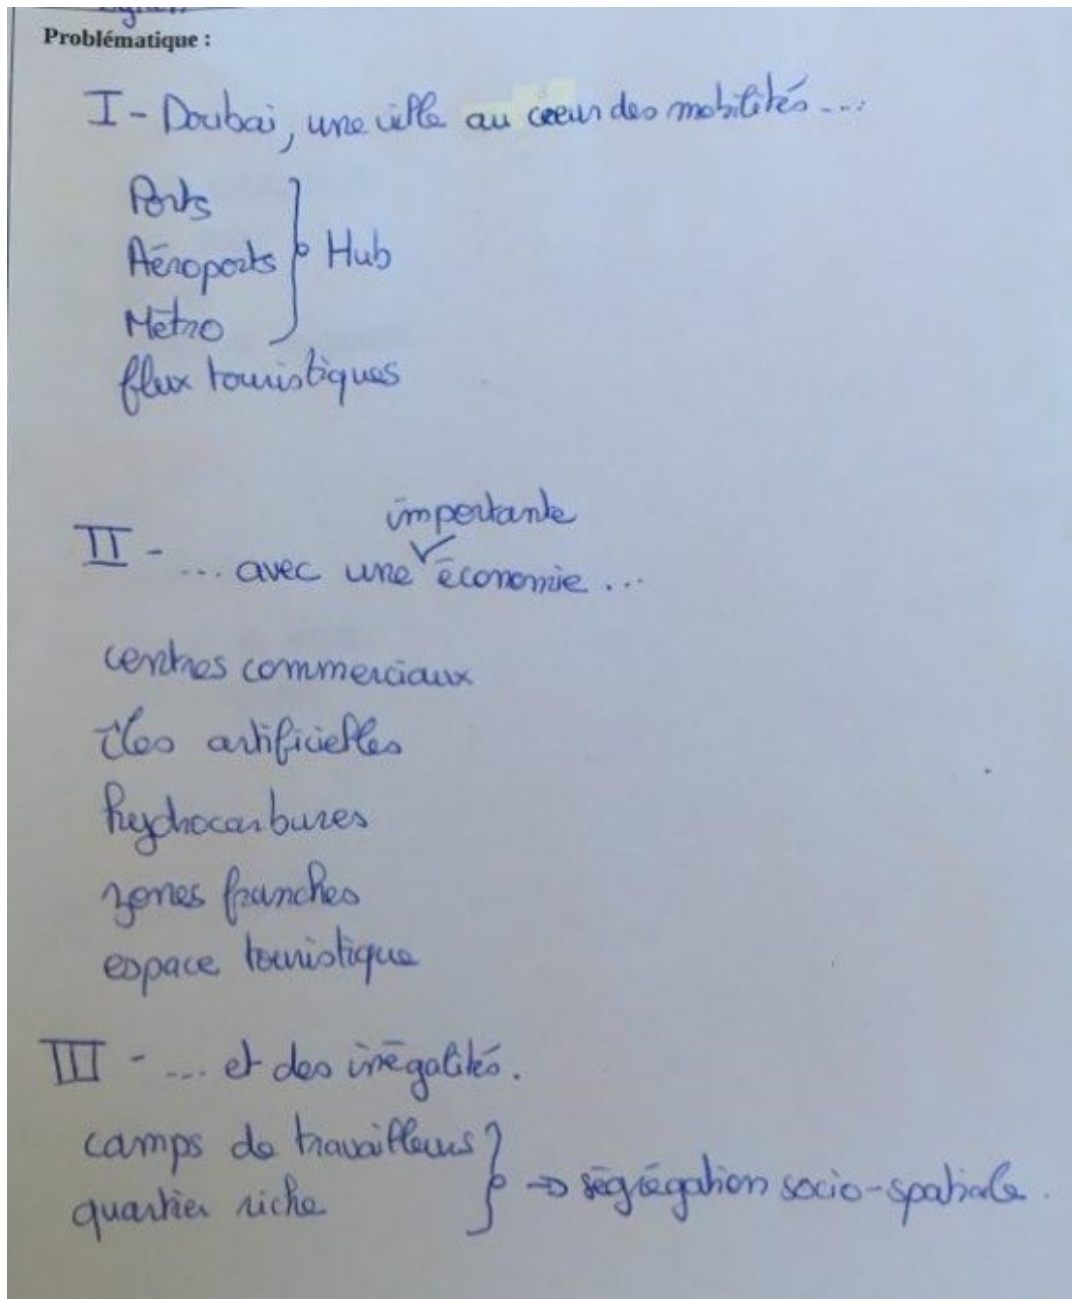 Problématique :
I - Doubai, une ville au cœur des mobilités ...
Ports
Aéroports } Hub
Métro
flux touristiques
importante
II - ... avec une économie ...
centres commerciaux
îles artificielles
hydrocarbures
zones franches
espace touristique
III - ... et des inégalités.
camps de travailleurs
quartier riche } → ségrégation socio-spatiale.